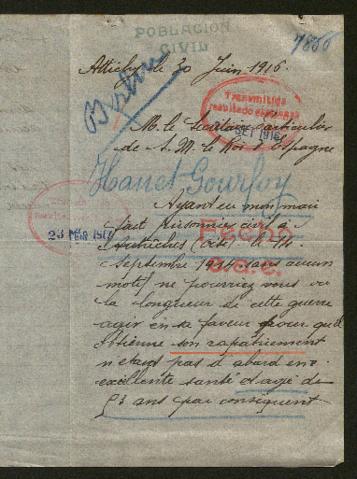 POBLACION
CIVIL
7856
Attichy le 30 Juin 1916.
M. le Secrétaire particulier
de S. M. le Roi d'Espagne
Transmitida
resultado
SET 1916
Hanet Gourfoy
Ayant eu mon mari
fait prisonnier civil à
(Oise) le 14
23 FEBR 1917
Fecha
septembre 1914 sans aucun
s.a.c.
motif ne pourriez vous vu
la longueur de cette guerre
agir en sa faveur pour qu'il
obtienne son rapatriement
n'étant pas d'abord en
excellente santé et agé de
53 ans par conséquent